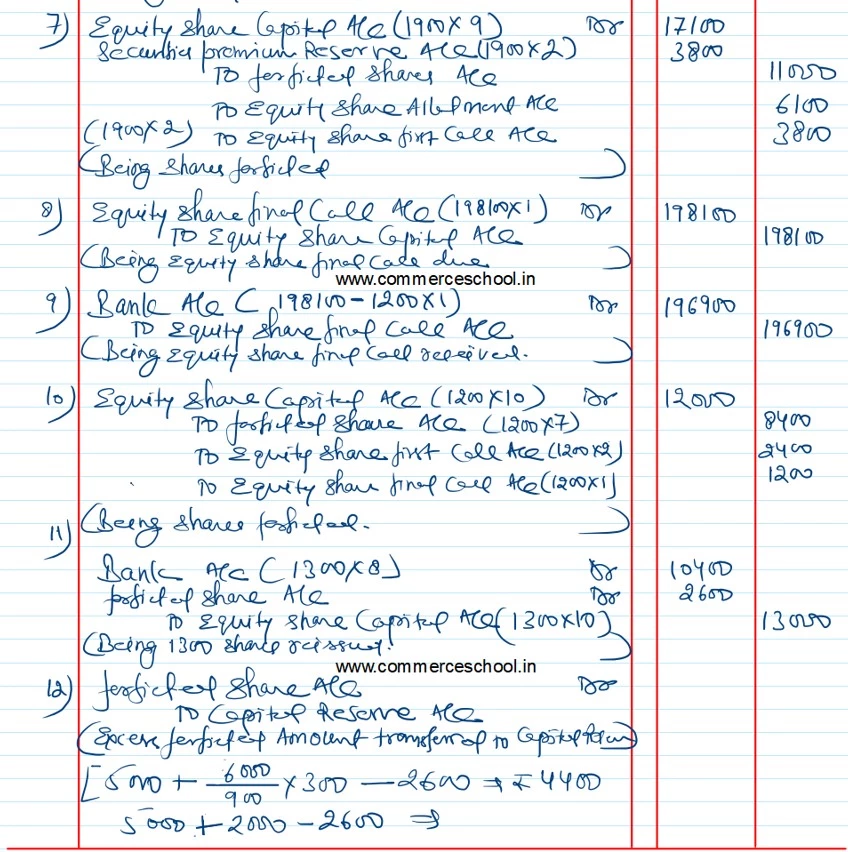 7) Equity Share Capital A/c (1900 X 9) Dr 17100
Securities premium Reserve A/c (1900 X 2) 3800
To forfeited Shares A/c 11000
To Equity Share Allotment A/c 6100
(1900 X 2) To Equity Share first Call A/c 3800
(Being Shares forfeited)
8) Equity Share final Call A/c (198100 X 1) Dr 198100
To Equity Share Capital A/c 198100
(Being Equity Share final Call due)
www.commerceschool.in
9) Bank A/c (198100 - 1200 X 1) Dr 196900
To Equity Share final Call A/c 196900
(Being Equity Share final Call received.)
10) Equity Share Capital A/c (1200 X 10) Dr 12000
To forfeited Share A/c (1200 X 7) 8400
To Equity Share first Call A/c (1200 X 2) 2400
To Equity Share final Call A/c (1200 X 1) 1200
(Being Shares forfeited.)
11)
Bank A/c (1300 X 8) Dr 10400
forfeited Share A/c Dr 2600
To Equity Share Capital A/c (1300 X 10) 13000
(Being 1300 Share reissued.)
www.commerceschool.in
12) forfeited Share A/c Dr
To Capital Reserve A/c
(Excess forfeited Amount transferred to Capital)
[5000 + 6000/900 X 300 - 2600 ⇒ ₹ 4400
5000 + 2000 - 2600 ⇒